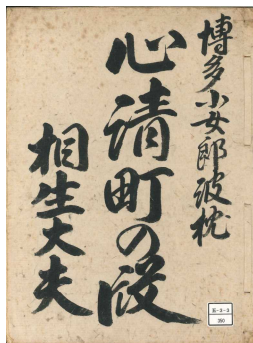 博多小女郎波枕
心清町の段
相生太夫
E-3-3
350